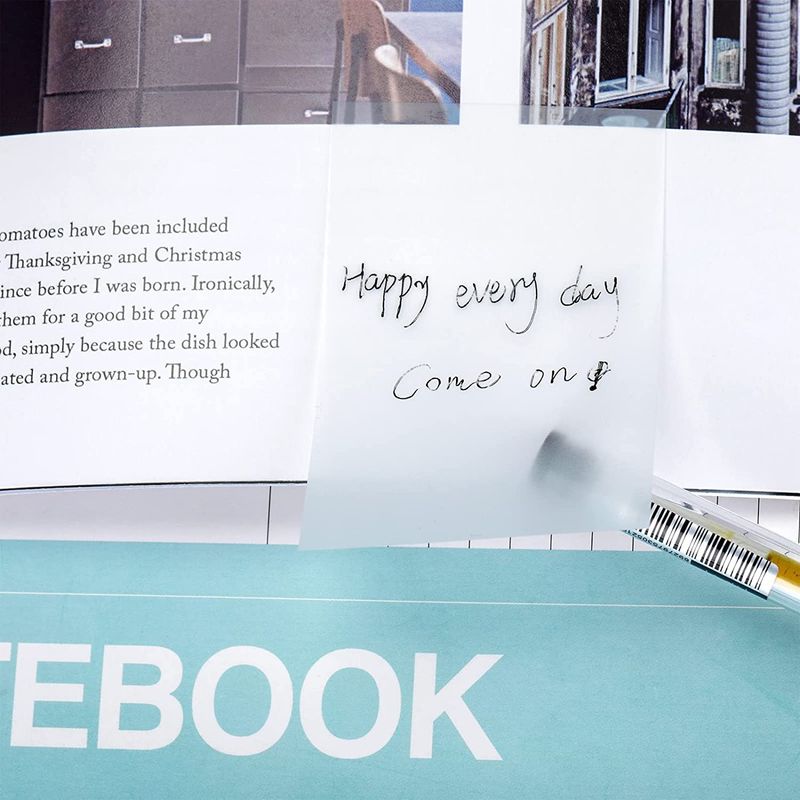 omatoes have been included
Thanksgiving and Christmas
ince before I was born. Ironically,
hem for a good bit of my
od, simply because the dish looked
ated and grown-up. Though
Happy every day
Come on!
TEBOOK